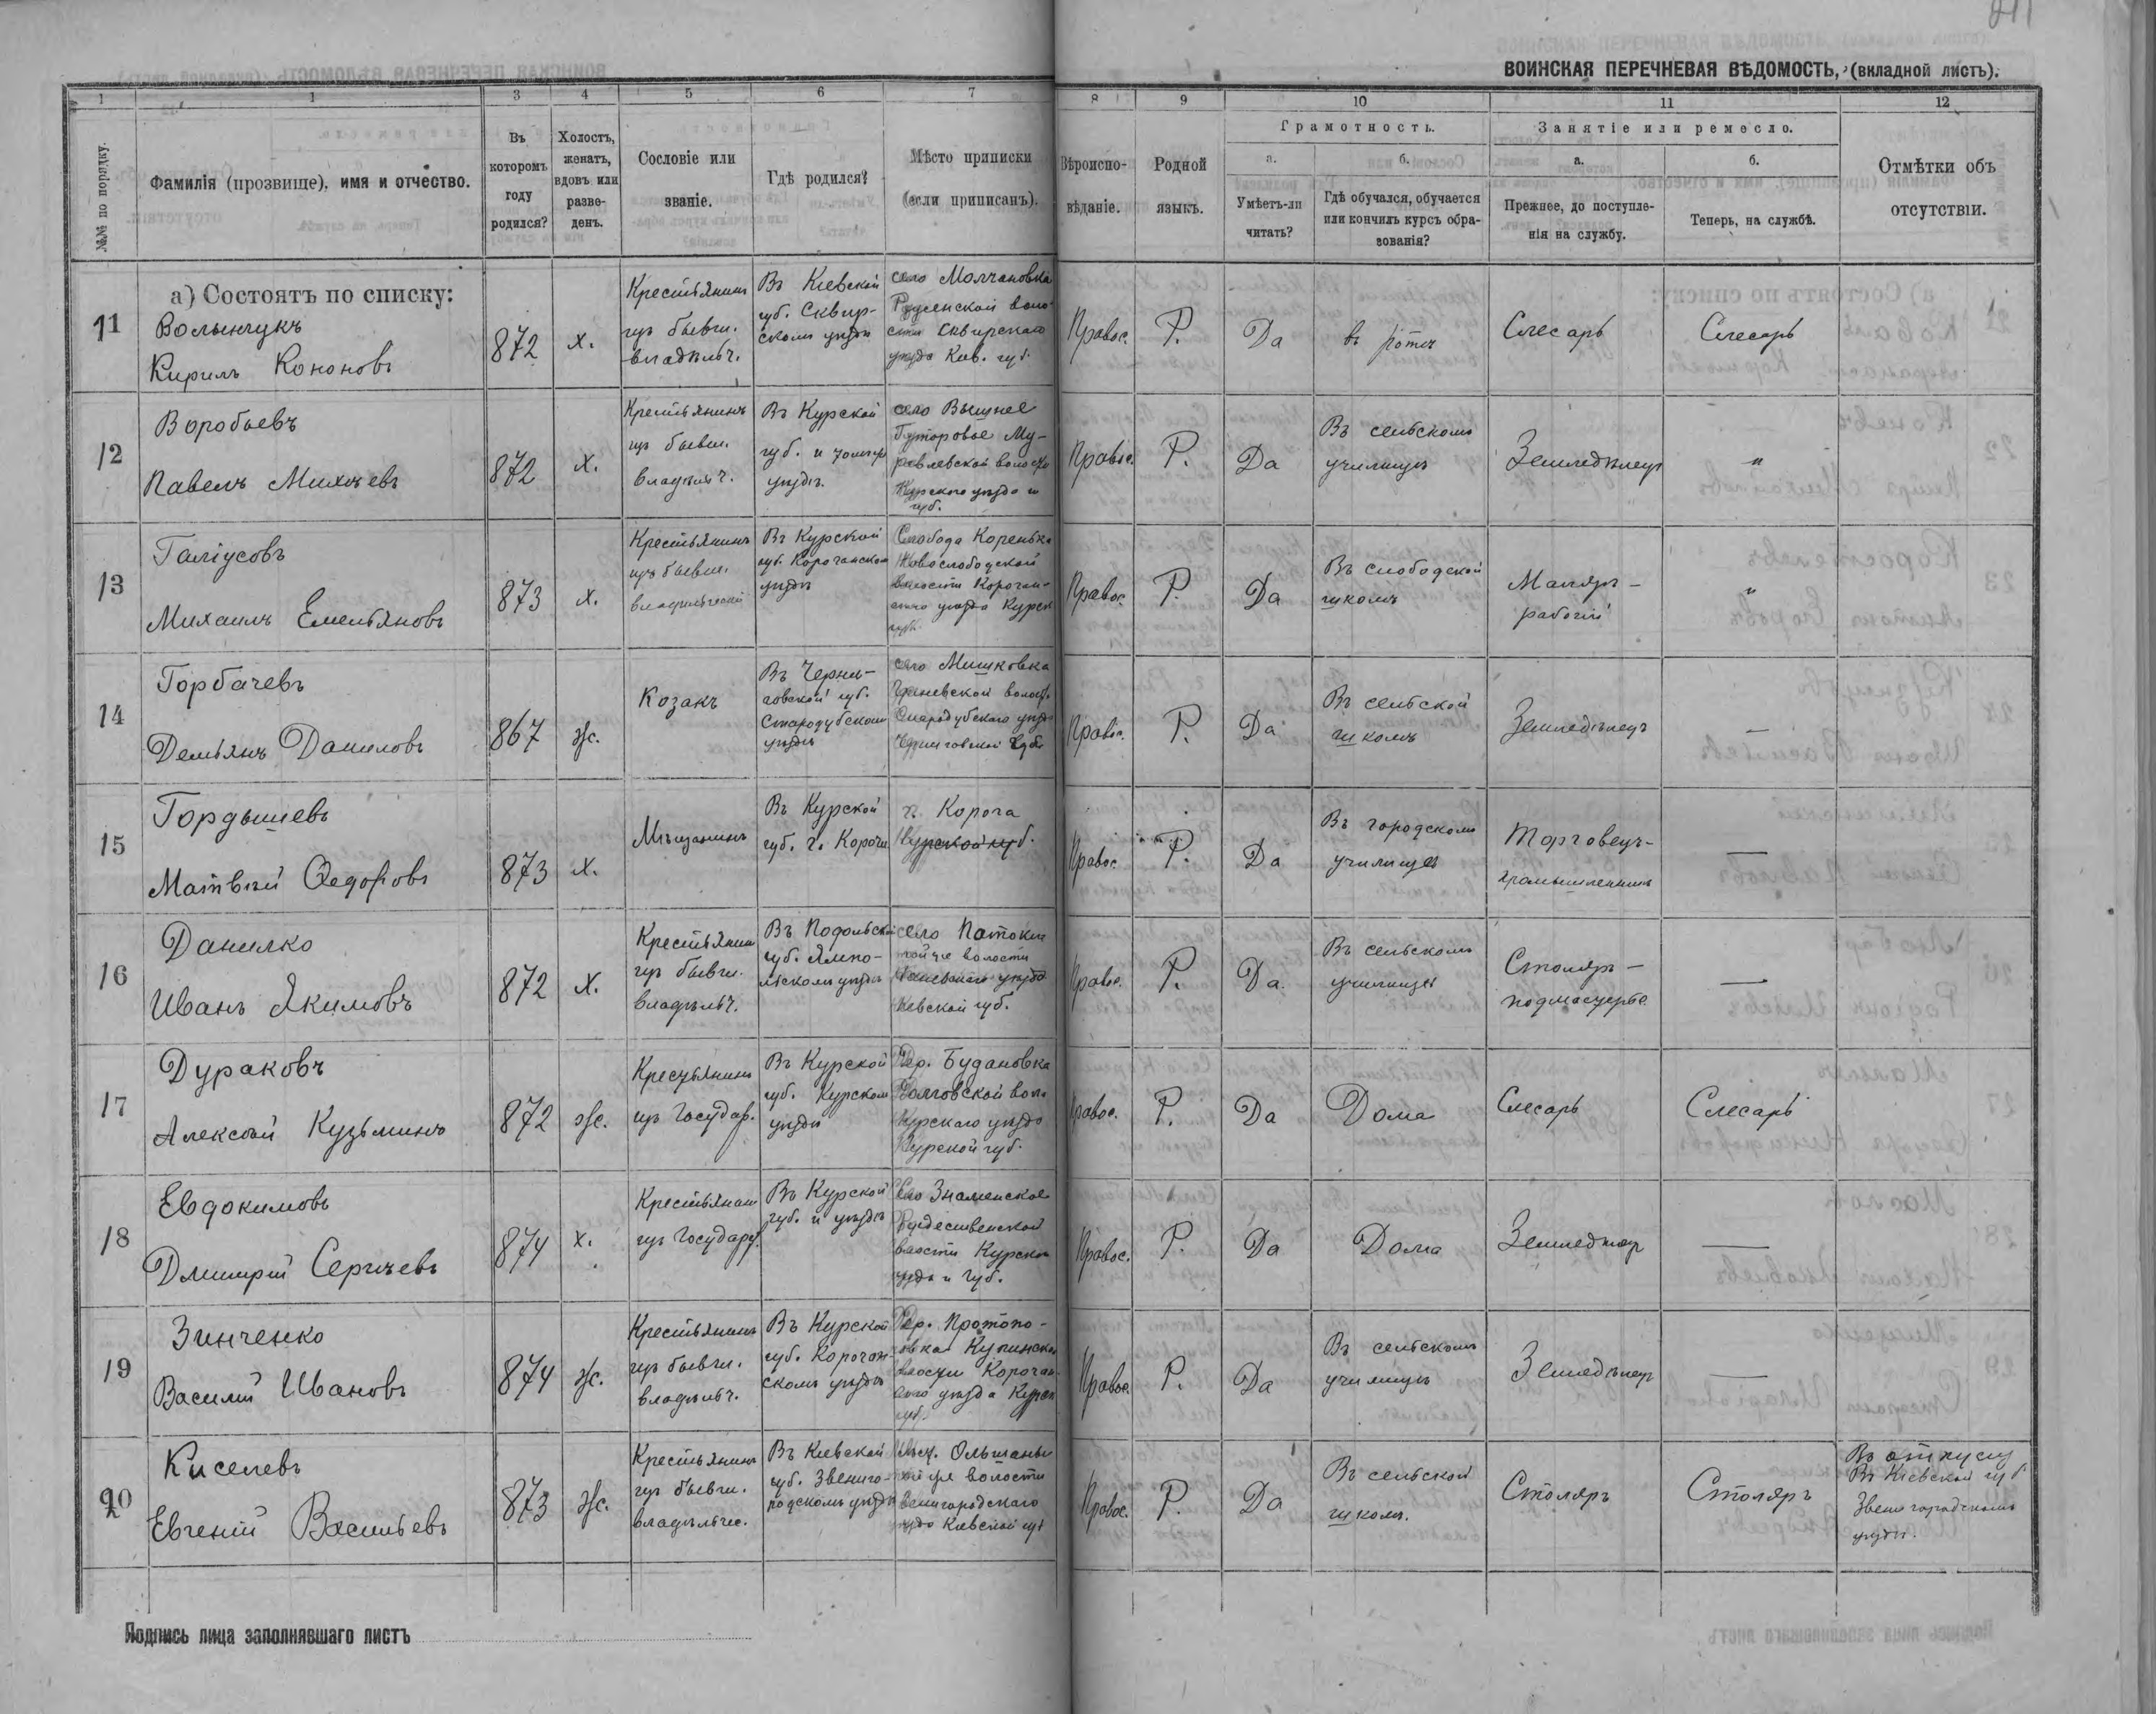 ВОИНСКАЯ ПЕРЕЧНЕВАЯ ВѢДОМОСТЬ, (вкладной листъ).
1 1 3 4 5 6 7 8 9 10 11 12
№№ по порядку.
Фамилія (прозвище), имя и отчество.
Въ
которомъ
году
родился?
Холостъ,
женатъ,
вдовъ или
разве-
денъ.
Сословіе или
званіе.
Гдѣ родился?
Мѣсто приписки
(если приписанъ).
Вѣроиспо-
вѣданіе.
Родной
языкъ.
Грамотность.
а.
Умѣетъ-ли
читать?
б.
Гдѣ обучался, обучается
или кончилъ курсъ обра-
зованія?
Занятіе или ремесло.
а.
Прежнее, до поступле-
нія на службу.
б.
Теперь, на службѣ.
Отмѣтки объ
отсутствіи.
а) Состоятъ по списку:
11
Волынчукъ
Кирилъ Кононовъ
872
х.
Крестьянинъ
изъ бывш.
владѣльч.
Въ Кіевской
губ. Сквир-
скомъ уѣздѣ
село Молчановка
воло-
сти Сквирскаго
уѣзда Кіев. губ.
Правос.
Р.
Да
въ ротѣ
Слесарь
Слесарь
12
Воробьевъ
Павелъ Михѣевъ
872
х.
Крестьянинъ
изъ бывш.
владѣльч.
Въ Курской
губ. и
уѣздѣ.
село Вышнее
Гуторовое Му-
равлевской волости
Курскаго уѣзда и
губ.
Правос.
Р.
Да
Въ сельскомъ
училищѣ
Земледѣлецъ
"
13
Галіусовъ
Михаилъ Емельяновъ
873
х.
Крестьянинъ
изъ бывш.
владѣльческой
Въ Курской
губ. Корочанскомъ
уѣздѣ
Слобода Коренька
Новослободской
волости Корочан-
скаго уѣзда Курск
губ.
Правос.
Р.
Да
Въ слободской
школѣ
Маляръ -
рабочій
"
14
Горбачевъ
Демьянъ Даниловъ
867
ж.
Козакъ
Въ Черни-
говской губ.
Стародубскомъ
уѣздѣ
село Мишковка
волост.
Стародубскаго уѣзда
Черниговской губ.
Правос.
Р.
Да
Въ сельской
школѣ
Земледѣлецъ
—
15
Гордышевъ
Матвѣй Ѳедоровъ
873
х.
Мѣщанинъ
Въ Курской
губ. г. Корочи
г. Короча
Курской губ.
Правос.
Р.
Да
Въ городскомъ
училищѣ
Торговецъ-
промышленникъ
—
16
Данилко
Иванъ Якимовъ
872
х.
Крестьянин
изъ бывш.
владѣльч.
Въ Подольской
губ. Ямпо-
льскомъ уѣздѣ
село Потоки
той же волости
уѣзда
Кіевской губ.
Правос.
Р.
Да.
Въ сельскомъ
училищѣ
Столяръ -
подмастерье
—
17
Дураковъ
Алексѣй Кузьминъ
872
ж.
Крестьянинъ
изъ Государ.
Въ Курской
губ. Курскомъ
уѣздѣ
Дер. Будановка
Долговской вол.
Курскаго уѣзда
Курской губ.
Правос.
Р.
Да
Дома
Слесарь
Слесарь
18
Евдокимовъ
Дмитрій Сергѣевъ
874
х.
Крестьянинъ
изъ Государ.
Въ Курской
губ. и уѣздѣ
Село Знаменское
Рождественской
волости Курскаго
уѣзда и губ.
Правос.
Р.
Да
Дома
Земледѣлецъ
—
19
Зинченко
Василій Ивановъ
874
ж.
Крестьянинъ
изъ бывш.
владѣльч.
Въ Курской
губ. Корочан-
скомъ уѣздѣ
Дер. Протопо-
повка
волости Корочан-
скаго уѣзда Курск
губ.
Правос.
Р.
Да
Въ сельскомъ
училищѣ
Земледѣлецъ
—
20
Киселевъ
Евгеній Васильевъ
873
ж.
Крестьянинъ
изъ бывш.
владѣльчес.
Въ Кіевской
губ. Звениго-
родскомъ уѣздѣ
Мѣст. Ольшаны
той же волости
Звенигородскаго
уѣзда Кіевской губ
Правос.
Р.
Да
Въ сельской
школѣ.
Столяръ
Столяръ
Въ отпуску
Въ Кіевской губ
Звенигородскомъ
уѣздѣ.
Подпись лица заполнявшаго листъ